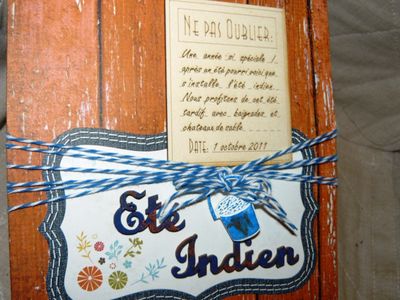 NE PAS OUBLIER:
Une année si spéciale !
après un été pourri voici que
s'installe l'été indien.
Nous profitons de cet été
tardif avec baignades et
chateaux de sable.
DATE: 1 octobre 2011
Eté
Indien